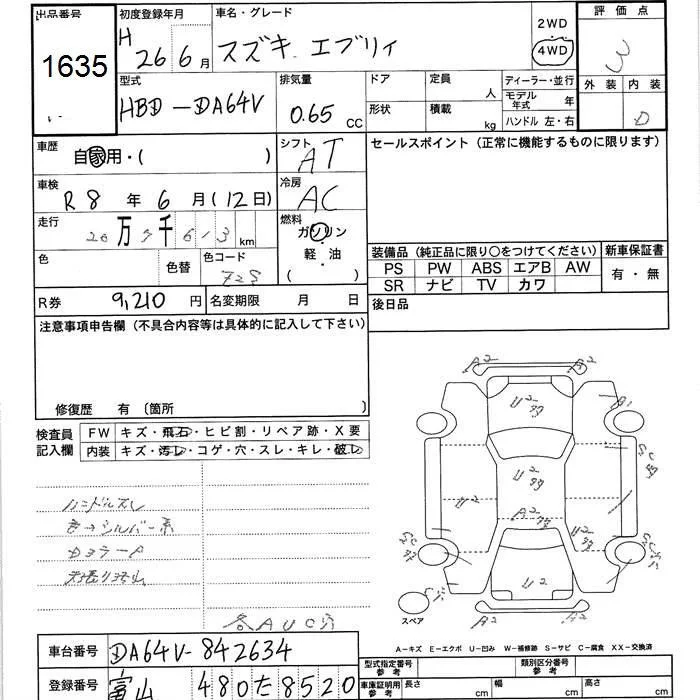 出品番号
1635
初度登録年月
H 26 6月
車名・グレード
スズキ エブリィ
2WD
4WD
評価点
3
外装 内装
D
型式
HBD-DA64V
排気量
0.65 CC
ドア
定員 人
形状
積載 kg
ディーラー・並行
モデル年式 年
ハンドル 左・右
車歴
自家用・( )
シフト
AT
セールスポイント(正常に機能するものに限ります)
車検
R8年6月(12日)
冷房
AC
走行
万 千 613 km
燃料
ガソリン
軽・油
( )
色
色替
色コード
装備品(純正品に限り○をつけてください)
新車保証書
PS PW ABS エアB AW
SR ナビ TV カワ
有・無
R券 9,210円
名変期限 月 日
後日品
注意事項申告欄(不具合内容等は具体的に記入して下さい)
修復歴 有〔箇所 〕
検査員記入欄
FW キズ・飛石・ヒビ割・リペア跡・X要
内装 キズ・汚レ・コゲ・穴・スレ・キレ・破レ
ハンドルスレ
カヨラーP
各AUC
A2 A2
U2
A1
U2
U2
A2
U2
U2
スペア
A-キズ E-エクボ U-凹み W-補修跡 S-サビ C-腐食 XX-交換済
車台番号 DA64V-842634
登録番号 富山 480 た 8520
型式指定番号 参考
類別区分番号 参考
車庫証明用 参考
長さ cm
幅 cm
高さ cm